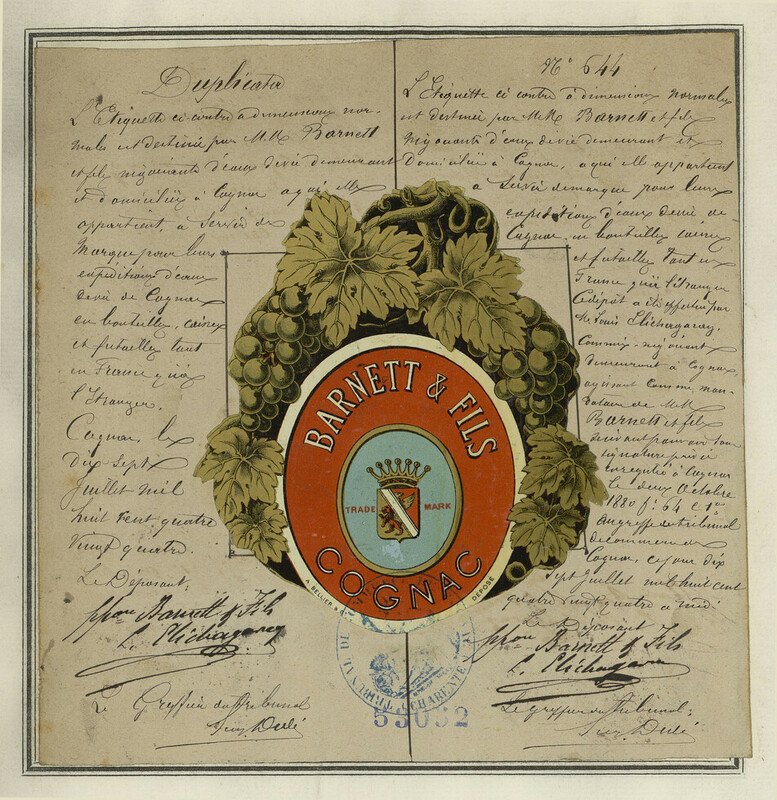 Duplicata
L'Etiquette ci contre a dimensions nor-
males est destinée par M.M. Barnett
et fils négociants d'eaux devie demeurant
et domiciliés à Cognac a qui elle
appartient, a servir de
Marque pour leurs
expéditions d'eaux
devie de Cognac
en bouteilles, caisses
et futailles tant
en France qu'à
l'Etranger.
Cognac, le
dix Sept
Juillet mil
huit cent quatre
vingt quatre.
Le Déposant,
ppon Barnett & Fils
L. Elichagaray
Le Greffier du Tribunal
N° 644
L'Etiquette ci contre à dimensions normales
est destinée par M.M. Barnett et fils
négociants d'eaux devie demeurant et
Domiciliés à Cognac, a qui elle appartient
a Servir demarque pour leurs
expéditions d'eaux devie de
Cognac, en bouteilles caisses
et futailles tant en
France qu'à l'Etranger
Ledépôt a été effectué par
M. Louis Elichagaray,
Commis-négociant
demeurant à Cognac,
agissant comme man-
dataire de M.M.
Barnett et fils
suivant pouvoir sous
signature privée
enregistré à Cognac
le deux Octobre
1880 f° 64 c 1re
au greffe du tribunal
decommerce de
Cognac, cejour dix
Sept Juillet mil huit cent
quatre vingt quatre a midi
Le Déposant
ppon Barnett & Fils
L. Elichagaray
Le greffier du Tribunal:
BARNETT & FILS
TRADE MARK
COGNAC
DÉPOSÉ
TRIBUNAL DE
CHARENTE
53032